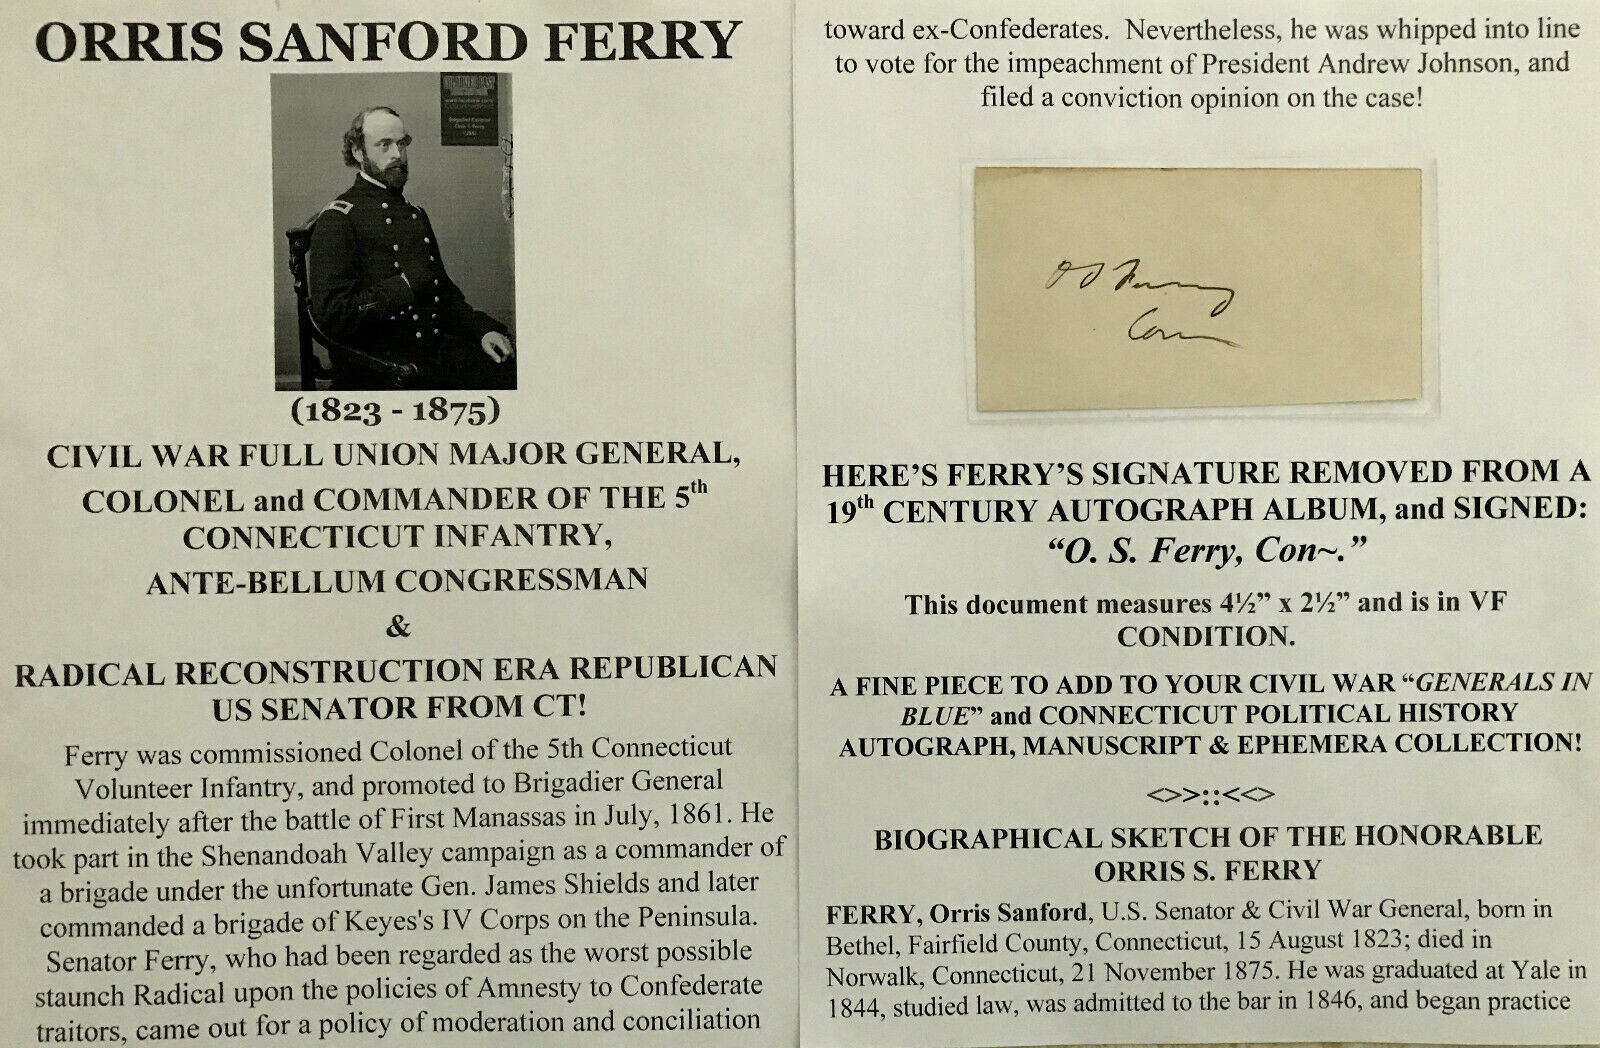 ORRIS SANFORD FERRY
(1823 - 1875)
CIVIL WAR FULL UNION MAJOR GENERAL,
COLONEL and COMMANDER OF THE 5th
CONNECTICUT INFANTRY,
ANTE-BELLUM CONGRESSMAN
&
RADICAL RECONSTRUCTION ERA REPUBLICAN
US SENATOR FROM CT!
Ferry was commissioned Colonel of the 5th Connecticut
Volunteer Infantry, and promoted to Brigadier General
immediately after the battle of First Manassas in July, 1861. He
took part in the Shenandoah Valley campaign as a commander of
a brigade under the unfortunate Gen. James Shields and later
commanded a brigade of Keyes's IV Corps on the Peninsula.
Senator Ferry, who had been regarded as the worst possible
staunch Radical upon the policies of Amnesty to Confederate
traitors, came out for a policy of moderation and conciliation
toward ex-Confederates. Nevertheless, he was whipped into line
to vote for the impeachment of President Andrew Johnson, and
filed a conviction opinion on the case!
O S Ferry
Conn
HERE'S FERRY'S SIGNATURE REMOVED FROM A
19th CENTURY AUTOGRAPH ALBUM, and SIGNED:
“O. S. Ferry, Con~.”
This document measures 4½” x 2½” and is in VF
CONDITION.
A FINE PIECE TO ADD TO YOUR CIVIL WAR “GENERALS IN
BLUE” and CONNECTICUT POLITICAL HISTORY
AUTOGRAPH, MANUSCRIPT & EPHEMERA COLLECTION!
<>>::<<>
BIOGRAPHICAL SKETCH OF THE HONORABLE
ORRIS S. FERRY
FERRY, Orris Sanford, U.S. Senator & Civil War General, born in
Bethel, Fairfield County, Connecticut, 15 August 1823; died in
Norwalk, Connecticut, 21 November 1875. He was graduated at Yale in
1844, studied law, was admitted to the bar in 1846, and began practice